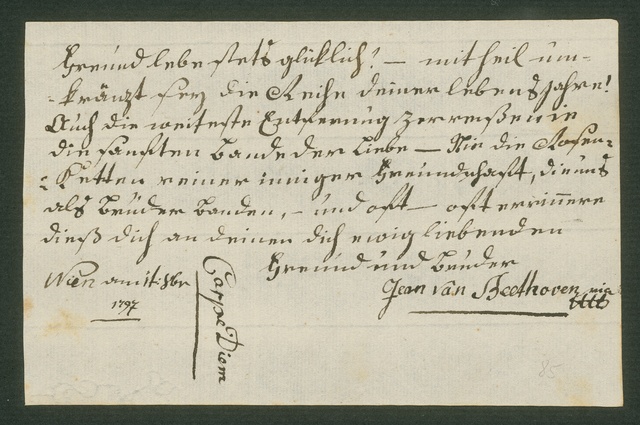 Freund lebe stets glüklich! — mit heil um-
-kränzt sey die Reihe deiner lebensJahre!
Auch die weiteste Entfernung zerreißen nie
die sanften bande der liebe — Nie die Rosen-
-Ketten reiner inniger Freundschaft, die uns
als brüder banden, — und oft — oft errinnere
dieß dich an deinen dich ewig liebenden
Freund und bruder
Jean van Beethoven
Wien am
1797
Carpe Diem
85